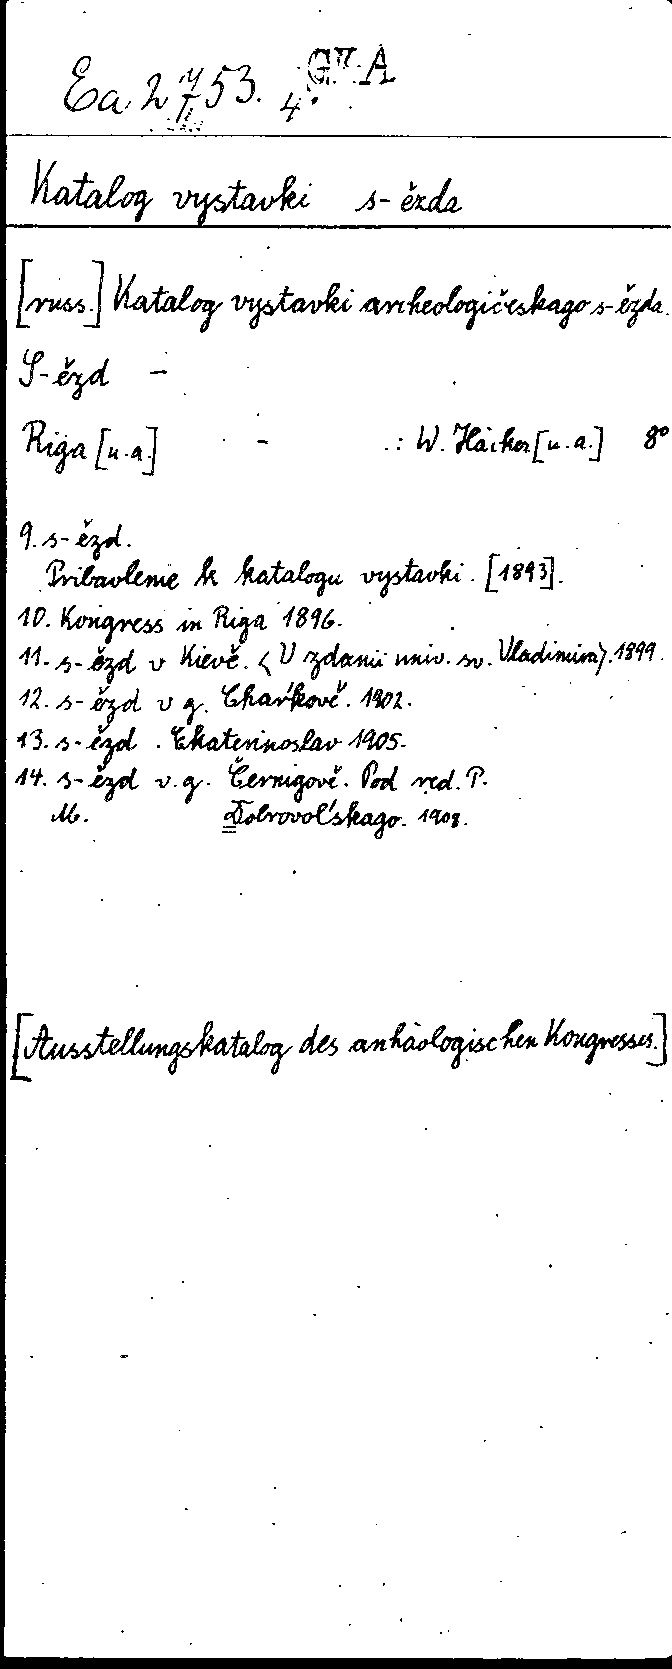 Ea 2753. 4°. A
Katalog vystavki s-ězda
[russ.] Katalog vystavki archeologičeskago s-ězda.
S-ězd –
Riga [u.a.] – .: W. Häcker [u.a.] 8°
9. s-ězd.
Pribavlenie k katalogu vystavki. [1893].
10. Kongress in Riga 1896.
11. s-ězd v Kievě. <U zdanii univ. sv. Vladimira>. 1899.
12. s-ězd v g. Char'kově. 1902.
13. s-ězd . Ekaterinoslav 1905.
14. s-ězd v. g. Černigově. Pod red. P.
M. Dobrovol'skago. 1908.
[Ausstellungskatalog des archäologischen Kongresses.]